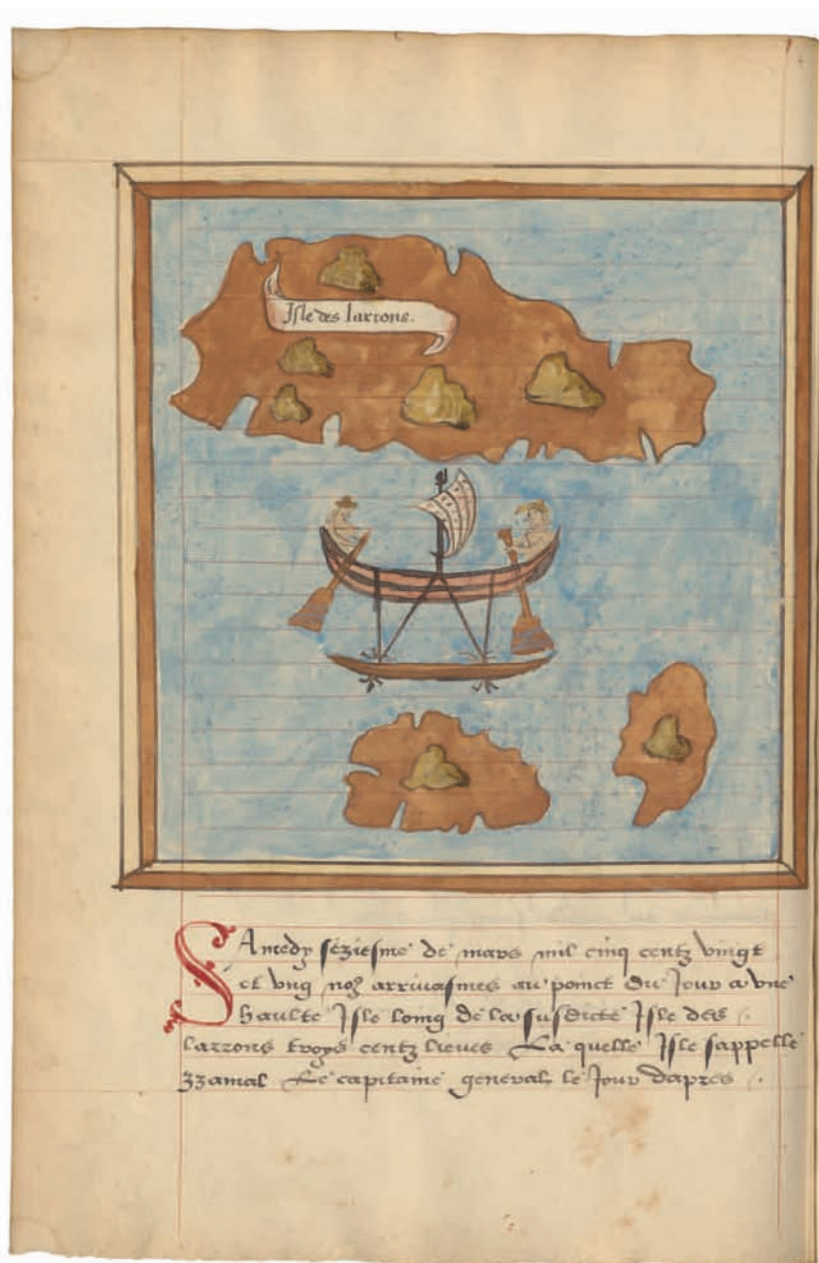 Isle des larrons.
SAmedy sêziesme de mars mil cinq centz vingt
et vng noz arriuasmes au poinct du Jour a vne
haulte Isle loing de la susdicte Isle des
larrons troys centz lieues La quelle Isle sappelle
zzamal Le capitaine general le Jour dapres